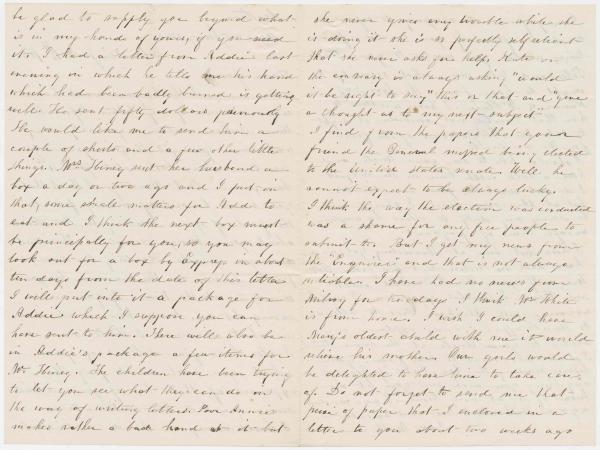 be glad to supply you beyond what
is in my hands of yours, if you need
it. I had a letter from Addie last
evening in which he tells me his hand
which had been badly burned is getting
well. He sent fifty dollars previously
He would like me to send him a
couple of shirts and a few other little
things. Mrs Hiney sent her husband a
box a day or two ago and I put in
that, some small matters for Add to
eat and I think the next box must
be principally for you, so you may
look out for a box by Express in about
ten days from the date of this letter
I will put into it a package for
Addie which I suppose you can
have sent to him. There will also be
in Addie's package a few items for
Mr Hiney. The children have been trying
to let you see what they can do in
the way of writing letters. Poor Annie
makes rather a bad hand at it but
she never gives any trouble while she
is doing it she is so perfectly self reliant
that she never asks for help. Kate on
the contrary is always asking "would
it be right to say" this or that and "give
a thought as to my next subject"
I find from the papers that your
friend the General missed being elected
to the United States senate. Well he
cannot expect to be always lucky.
I think the way the election was conducted
was a shame for any free people to
submit to. But I get my news from
the "Enquirer" and that is not always
reliable. I have had no news from
Milroy for ten days. I think Mr White
is from home. I wish I could have
Mary's oldest child with me it would
relieve his mother. Our girls would
be delighted to have him to take care
of. Do not forget to send me that
piece of paper that I enclosed in a
letter to you about two weeks ago